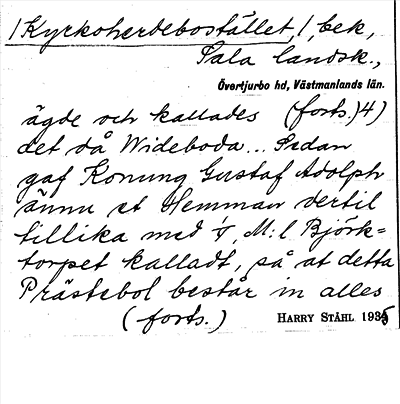 /Kyrkoherdebostället,/, bek,
Sala landsk.,
Övertjurbo hd, Västmanlands län.
ägde och kallades (forts.) 4)
det då Wideboda... Sedan
gaf Konung Gustaf Adolph
ännu et Hemman dertil
tillika med M:l Björk=
torpet kalladt, så at detta
Prästebol består in alles
(forts.)
HARRY STÅHL 1935